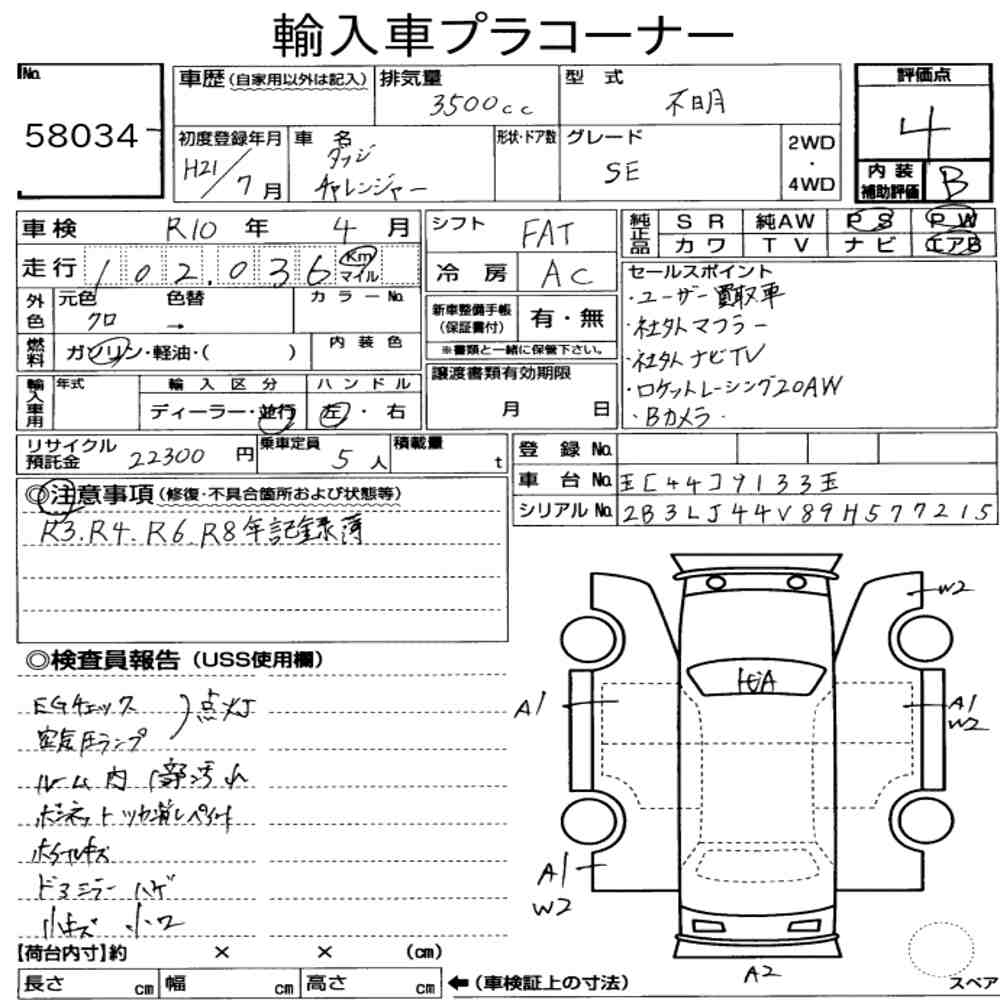 輸入車プラコーナー
No. 58034
車歴(自家用以外は記入) 排気量 3500cc 型式 不明
評価点 4
初度登録年月 H21/7月 車名 ダッジ チャレンジャー 形状・ドア数 グレード SE 2WD・4WD
内装補助評価 B
車検 R10年 4月 シフト FAT 純正品 SR 純AW PS PW
カワ TV ナビ エアB
走行 102,036 Km マイル 冷房 AC
セールスポイント
・ユーザー買取車
・社外マフラー
・社外ナビTV
・ロケットレーシング20AW
・Bカメラ.
外色 元色 クロ 色替 → カラーNo.
新車整備手帳(保証書付) 有・無
※書類と一緒に保管下さい。
燃料 ガソリン・軽油・( ) 内装色
譲渡書類有効期限
月 日
輸入車用 年式 輸入区分 ハンドル
ディーラー・並行 左・右
リサイクル預託金 22300円 乗車定員 5人 積載量 t
登録No.
車台No. 王[44]9133王
シリアルNo. 2B3LJ44V89H577215
◎注意事項(修復・不具合箇所および状態等)
R3.R4.R6.R8年記録簿
◎検査員報告(USS使用欄)
EGチェックス
空気圧ランプ )点灯
ルーム内 部汚れ
ボンネット ツヤ消しペイント
ホイールキズ
ドアミラー ハゲ
小キズ 小ワ
W2
A1
A1
W2
A1
W2
A2
スペア
【荷台内寸】約 × × (cm)
長さ cm 幅 cm 高さ cm ←(車検証上の寸法)